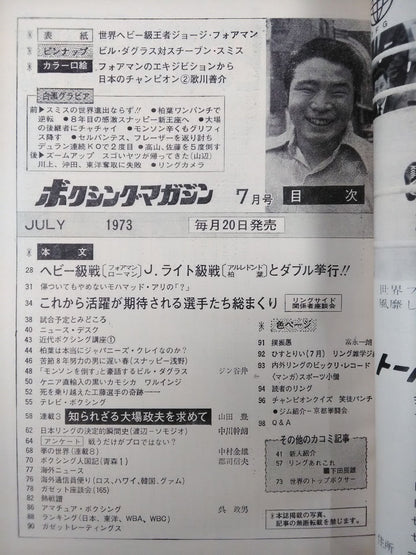 表紙 世界ヘビー級王者ジョージ・フォアマン
ピンナップ ビル・ダグラス対スチーブン・スミス
カラー口絵 フォアマンのエキジビションから
日本のチャンピオン②歌川善介
白黒グラビア
前▶スミスの世界進出ならず!! ●柏葉ワンパンチで
逆転 ●8年目の感激スナッピー新王座へ ●大場
の後継者にチャチャイ ●モンソン辛くもグリフィ
ス降す ●セルバンテス、フレーザーを返り討ち
デュラン連続KOで2度目 ●高山、佐藤を5度倒す
後▶ズームアップ スゴいヤツが帰ってきた(山辺)
川上、沖田、東洋奪取に失敗 ●リングカメラ
ボクシング・マガジン 7月号 目次
JULY 1973 毎月20日発売
本文
28 ヘビー級戦〔フォアマン ローマン〕J.ライト級戦〔アルレドンド 柏葉〕とダブル挙行!!
31 傷ついてもやめないモハマッド・アリの「?」
34 これから活躍が期待される選手たち総まくり リングサイド関係者座談会
38 試合予定とみどころ
40 ニュース・デスク
43 近代ボクシング講座①
44 柏葉は本当にジャパニーズ・クレイなのか?
46 苦節8年努力の男に遅い春(スナッピー浅野)
48 「モンソンを倒す」と豪語するビル・ダグラス ジン谷井
50 ケニア直輸入の黒いカモシカ ワルインジ
52 死を乗り越えた工藤選手の奇跡
55 テレビ・ボクシング
58 連載3 知られざる大場政夫を求めて 山田豊
62 日本リングの決定的瞬間史(渡辺―ソモジオ) 中川幹朗
64 アンケート 戦うだけがプロではない?
68 拳の世界(連載8) 中村金雄
70 ボクシング人国記(青森1) 郡司信夫
77 海外ニュース
76 海外通信員便り(ロス、ハワイ、韓国、グァム)
78 ガゼット座談会(165)
82 熱戦譜
86 アマチュア・ボクシング 呉政男
88 ランキング(日本、東洋、WBA、WBC)
90 ガゼットレーティングス
色ページ
91 撲面愚 富永一朗
92 ひすとりい(7月) リング雑学
93 内外リングのビックリ・レコード
(マンガ)スポーツ小僧
94 読者のリング
96 チャンピオンクイズ 笑往パンチ
●ジム紹介―京都拳闘会
98 Q&A
その他のカコミ記事
41 新人紹介
57 リングあれこれ
■下田辰雄
73 世界のトップボクサー
※本誌掲載の写真、
記事の無断転載を禁じます。